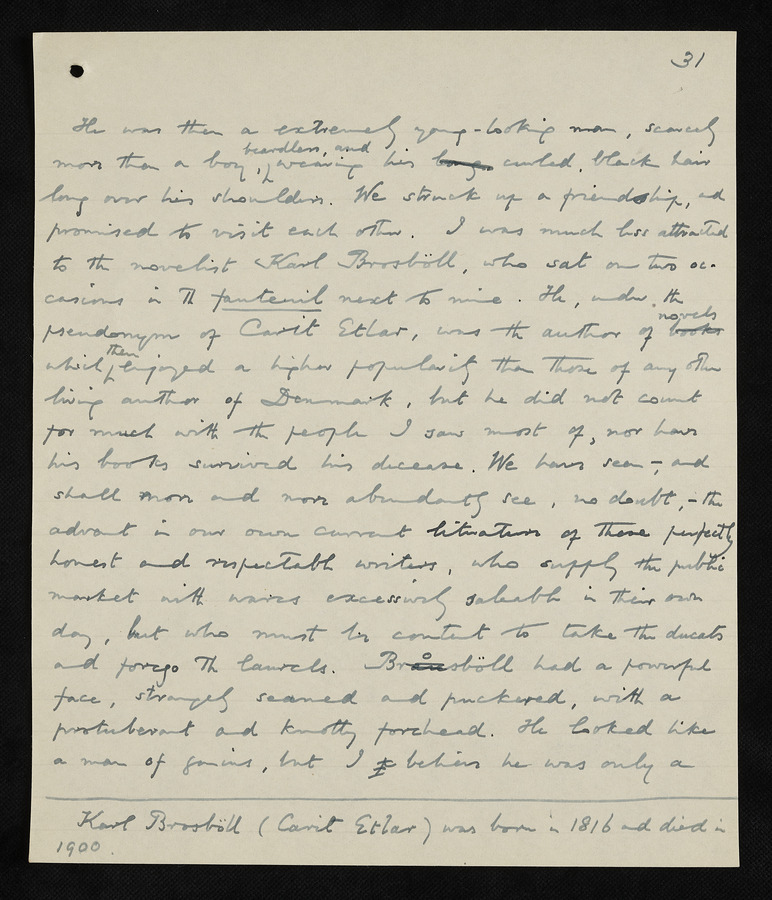 31
He was then a extremely young-looking man, scarcely
more than a boy, beardless, and wearing his long curled, black hair
long over his shoulders. We struck up a friendship, and
promised to visit each other. I was much less attracted
to the novelist Karl Brosböll, who sat on two oc-
casions in the fauteuil next to mine. He, under the
pseudonym of Carit Etlar, was the author of books novels
which then enjoyed a higher popularity than those of any other
living author of Denmark, but he did not count
for much with the people I saw most of, nor have
his books survived his decease. We have seen -, and
shall more and more abundantly see, no doubt, - the
advent in our own current literature of these perfectly
honest and respectable writers, who supply the public
market with wares excessively saleable in their own
day, but who must be content to take the ducats
and forego the laurels. Brosböll had a powerful
face, strangely seamed and puckered, with a
protuberant and knotty forehead. He looked like
a man of genius, but I believe he was only a
Karl Brosböll (Carit Etlar) was born in 1816 and died in
1900.